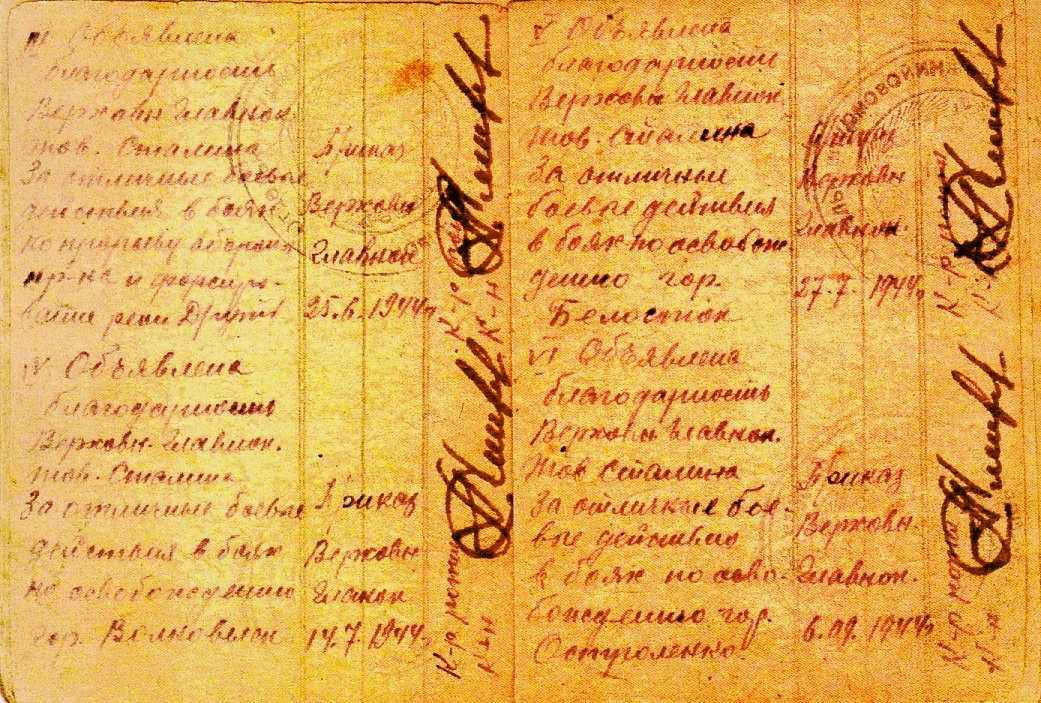 III Объявлена
благодарность
Верховн Главнок
тов. Сталина
За отличные боевые
действия в боях
по прорыву обороны
пр-ка и форсиро-
вание реки Друть
Приказ
Верховн
Главнок
25.6.1944г.
IV Объявлена
благодарность
Верховн. Главнок.
тов. Сталина
За отличные боевые
действия в боях
по освобождению
гор. Волковыск
Приказ
Верховн
Главнок
14.7.1944г.
К-р роты
К-н
V Объявлена
благодарность
Верховн Главнок.
тов. Сталина
За отличные
боевые действия
в боях по освобож
дению гор.
Белосток
Приказ
Верховн
Главнок.
27.7.1944г.
VI Объявлена
благодарность
Верховн Главнок.
тов Сталина
За отличные бое-
вые действия
в боях по осво-
бождению гор.
Остроленко.
Приказ
Верховн.
Главнок.
6.09.1944г
К-р роты
К-н